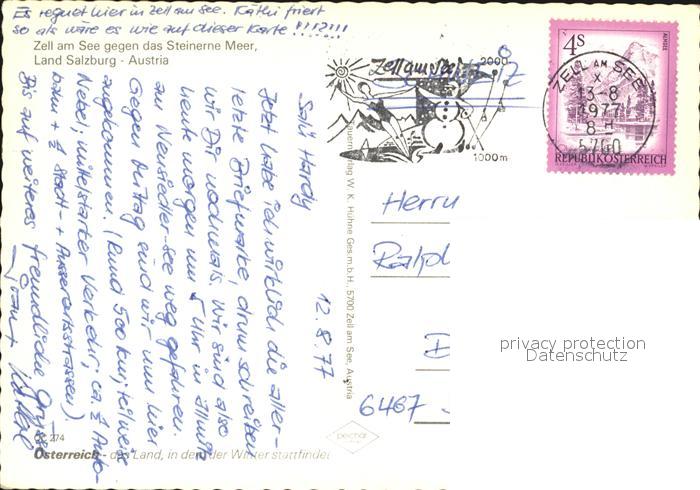 Es regnet hier in Zell am See. Käthi friert
so als wäre es wie auf dieser Karte !!!!?!!!
Zell am See gegen das Steinerne Meer,
Land Salzburg - Austria
Salü Hardy
12.8.77
Jetzt habe ich wirklich die aller-
letzte Briefmarke, drum schreiben
wir Dir nochmals. Wir sind also
heute morgen um 5 Uhr in
am Neusiedler-See weg gefahren.
Gegen Mittag sind wir nun hier
angekommen. (Rund 500 km; teilweise
Nebel; mittelstarker Verkehr; ca. ½ Auto-
bahn + ½ Stadt- + Ausserortsstrassen).
Bis auf weiteres freundliche Grüsse
CC 274
Österreich - das Land, in dem der Winter stattfindet
Zell am See
2000
1000m
4S
ALMSEE
REPUBLIK ÖSTERREICH
ZELL AM SEE
X
13.-8
1977
8 H
5700
Verlag W. K. Hühne Ges.m.b.H., 5700 Zell am See, Austria
pechar
Herrn
Ralph
6467
privacy protection
Datenschutz